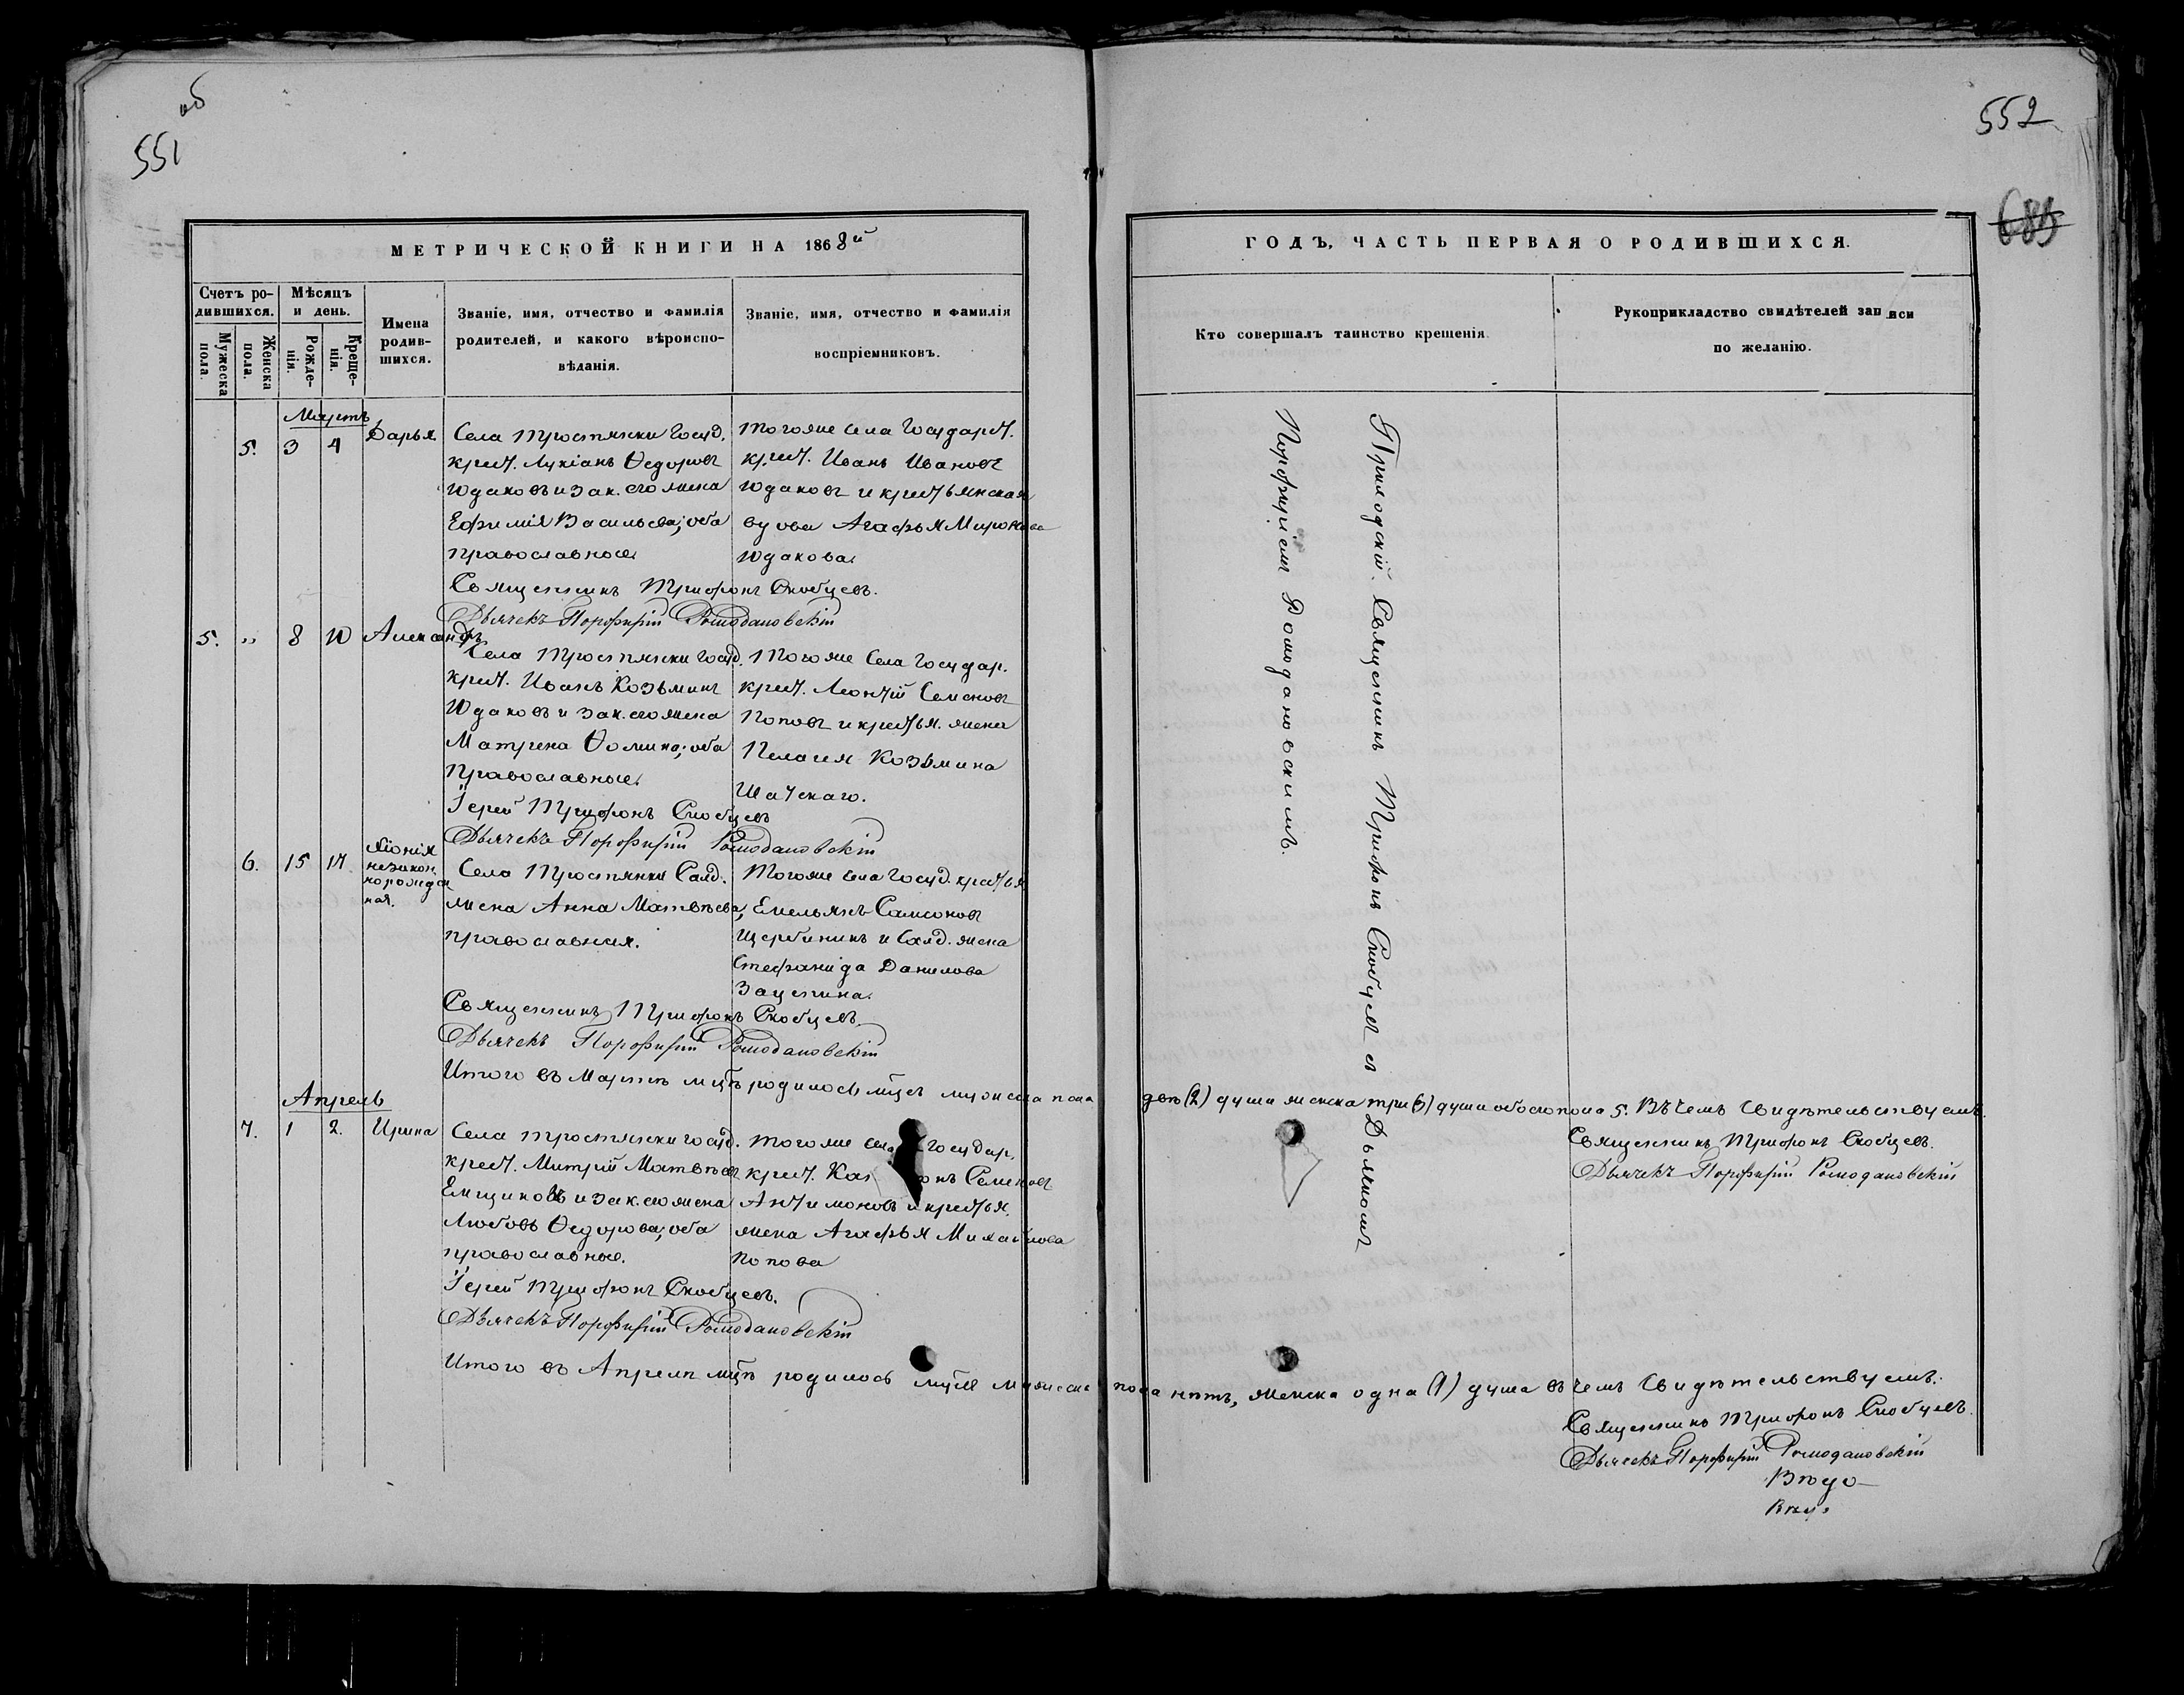 551 об
552
685
МЕТРИЧЕСКОЙ КНИГИ НА 1868й
Счетъ ро-
дившихся.
Мѣсяцъ
и день.
Мужеска
пола.
Женска
пола.
Рожде-
нія.
Креще-
нія.
Имена
родив-
шихся.
Званіе, имя, отчество и фамилія
родителей, и какого вѣроиспо-
вѣданія.
Званіе, имя, отчество и фамилія
воспріемниковъ.
Мартъ
5. 3 4 Дарья
Села Тростянки Госуд.
крест. Лукіанъ Ѳедоровъ
Юдаковъ и зак. его жена
Ефимія Васильева; оба
православные.
Тогоже села Государст.
крест. Иванъ Ивановъ
Юдаковъ и крестьянская
вдова Агафья Миронова
Юдакова.
Священникъ Трифонъ Скобцевъ.
Дьячекъ Порфирій Ромодановскій
5. „ 8 10 Александръ
Села Тростянки Госуд.
крест. Иванъ Козьминъ
Юдаковъ и зак. его жена
Матрена Ѳомина; оба
православные.
Тогоже Села Государ.
крест. Леонтій Семеновъ
Поповъ и крестья. жена
Пелагея Козьмина
Шатскаго.
Іерей Трифонъ Скобцевъ
Дьячекъ Порфирій Ромодановскій
6. 15 17
Хіонія
незакон
норожден
ная.
Села Тростянки Салд.
жена Анна Матвѣева,
православная.
Тогоже села Госуд. крестья
Емельянъ Самсоновъ
Щербининъ и Салд. жена
Стефанида Данилова
Зацепина.
Священникъ Трифонъ Скобцевъ.
Дьячекъ Порфирій Ромодановскій
Итого въ Мартѣ мцѣ родилось мужеска пола
Апрель
7. 1 2. Ирина
Села Тростянки Госуд.
крест. Митрій Матвѣевъ
Емщиковъ и зак. его жена
Любовь Ѳедорова; оба
православные.
Тогоже села Государ.
крест. Семеновъ
Антимоновъ и крестья.
жена Агафья Михайлова
Попова
Іерей Трифонъ Скобцевъ.
Дьячекъ Порфирій Ромодановскій
Итого въ Апрелѣ мцѣ родилось мужеска
ГОДЪ, ЧАСТЬ ПЕРВАЯ О РОДИВШИХСЯ.
Кто совершалъ таинство крещенія.
Рукоприкладство свидѣтелей записи
по желанію.
Приходскій Священникъ Трифонъ Скобцевъ съ Дьячкомъ
Порфиріемъ Ромодановскимъ.
двѣ (2) души женска три (3) души обоего пола 5. Въ чемъ Свидѣтельствуемъ.
Священникъ Трифонъ Скобцевъ.
Дьячекъ Порфирій Ромодановскій
пола нѣтъ, женска одна (1) душа въ чемъ Свидѣтельствуемъ.
Священникъ Трифонъ Скобцевъ.
Дьячекъ Порфирій Ромодановскій